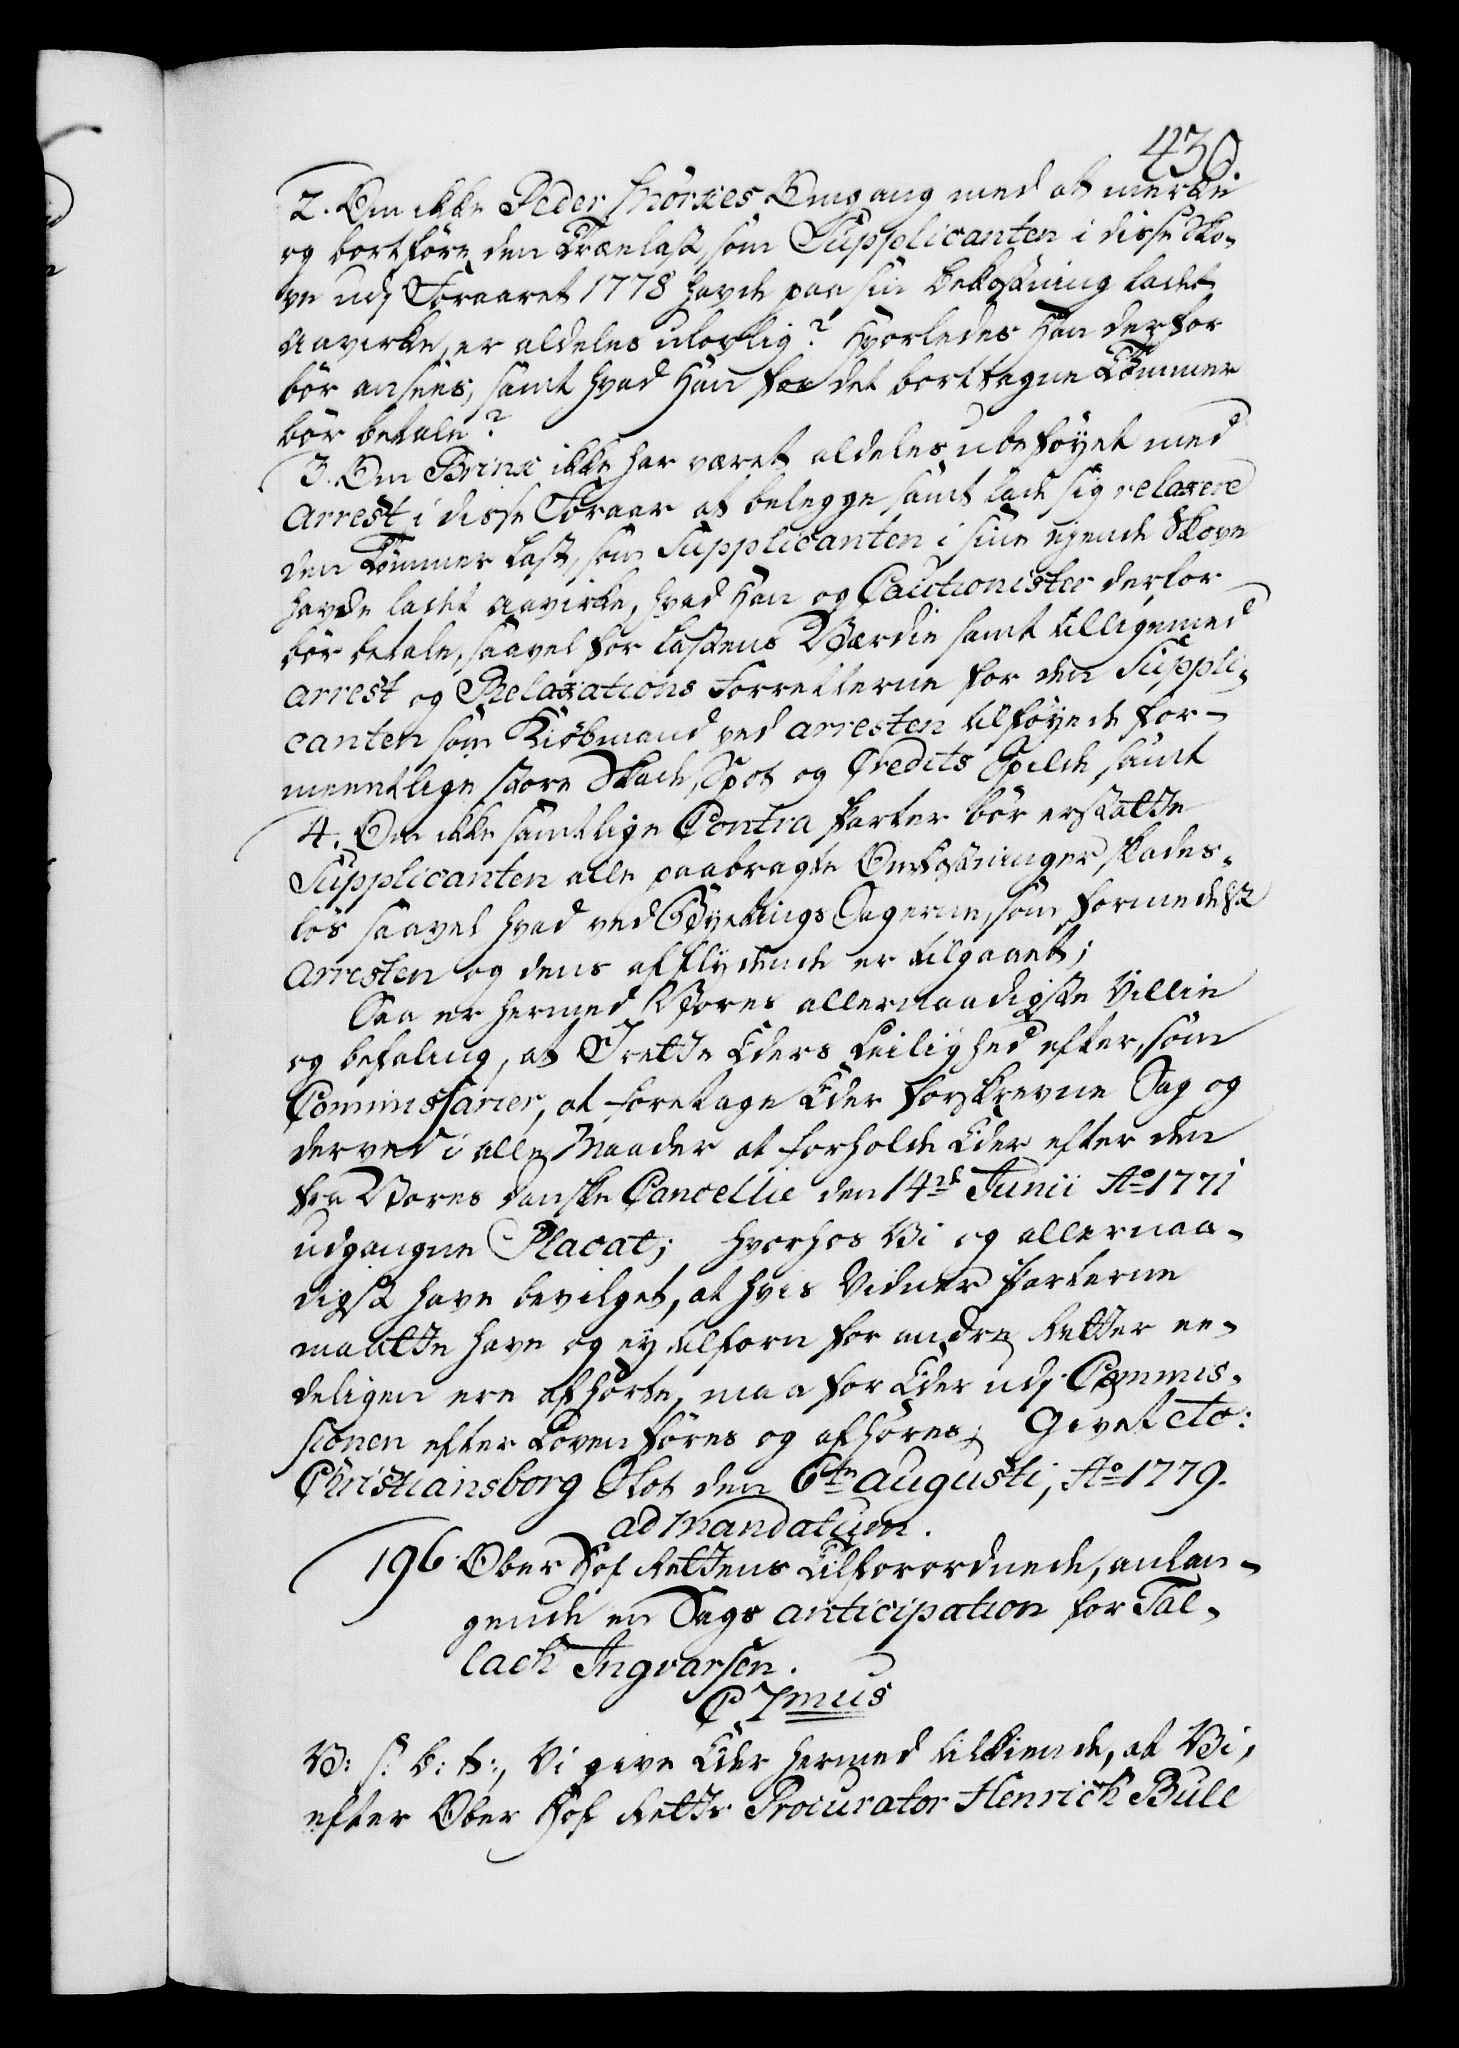 430
2. Om ikke Peder Mörxes Omgang med at merke
og bortföre den Trælast, som Supplicanten i disse Sko¬
ve udj Foraaret 1778 havde paa sin Bekostning ladet
aavirke, er aldeles ulovlig? Hvorledes Han derfor
bör ansees, samt hvad Han for det borttagne Tömmer
bör betale?
3. Om Brinx ikke har været aldeles ubeföyet med
Arrest i disse Foraar at belegge samt lade sig relaxere
den Tömmer Last, som Supplicanten i sine ejende Skove
havde ladet aavirke, hvad Han og Cautionister derfor
bör betale, saavel for Lastens Værdie samt tilligemed
Arrest og Relaxations Forretterne for den Suppli¬
canten som Kiöbmand ved Arresten tilföyede for¬
meentlige store Skade, Spot og Credits Spilde, samt
4. Om ikke samtlige Contra Parter bör erstatte
Supplicanten alle paabragte Omkostninger, skades¬
lös saavel hvad ved Bÿetings Sagerne, som formedelst
Arresten og dens afflydende er tilgaaet;
Saa er hermed Vores allernaadigste Villie
og befaling, at I rette Eders Leilighed efter, som
Commissarier, at foretage Eder forskrevne Sag og
derved i alle Maader at forholde Eder efter den
fra Vores danske Cancellie den 14de Junii Ao 1771
udgangne Placat; hvorhos Vi og allernaa¬
digst have bevilget, at hvis Vidner Parterne
maatte have og ey tilforn for andre Retter ee¬
deligen ere afhörte, maa for Eder udj Commis¬
sionen efter Loven föres og afhöres; Givet etc:
Christiansborg Slot den 6te Augusti, Ao 1779.
ad Mandatum.
196. Ober Hof Rettens Tilforordnede, anlan¬
gende en Sags anticipation for Tal¬
lach Ingvarsen.
C 7mus
V: S: B: t:, Vi give Eder hermed tilkiende, at Vi,
efter Ober Hof Retts Procurator Henrich Bull